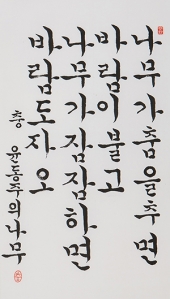 나무가춤을추면
바람이불고
나무가잠잠하면
바람도자오
충 윤동주의나무